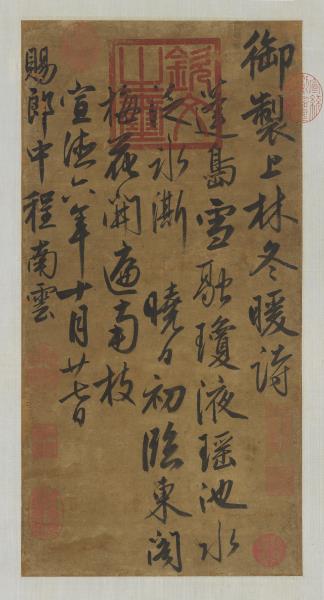 御製上林冬暖詩
蓬島雪融瓊液瑶池水
泛氷澌曉日初臨東閣
梅花開遍南枝
宣德六年十月廿七日
賜郎中程南雲
欽文之璽